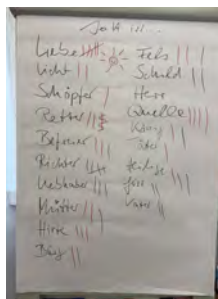 Gott ist...
Liebe
Licht
Schöpfer
Retter
Befreier
Richter
Liebhaber
Mutter
Hirte
Burg
Fels
Schild
Herr
Quelle
König
Vater